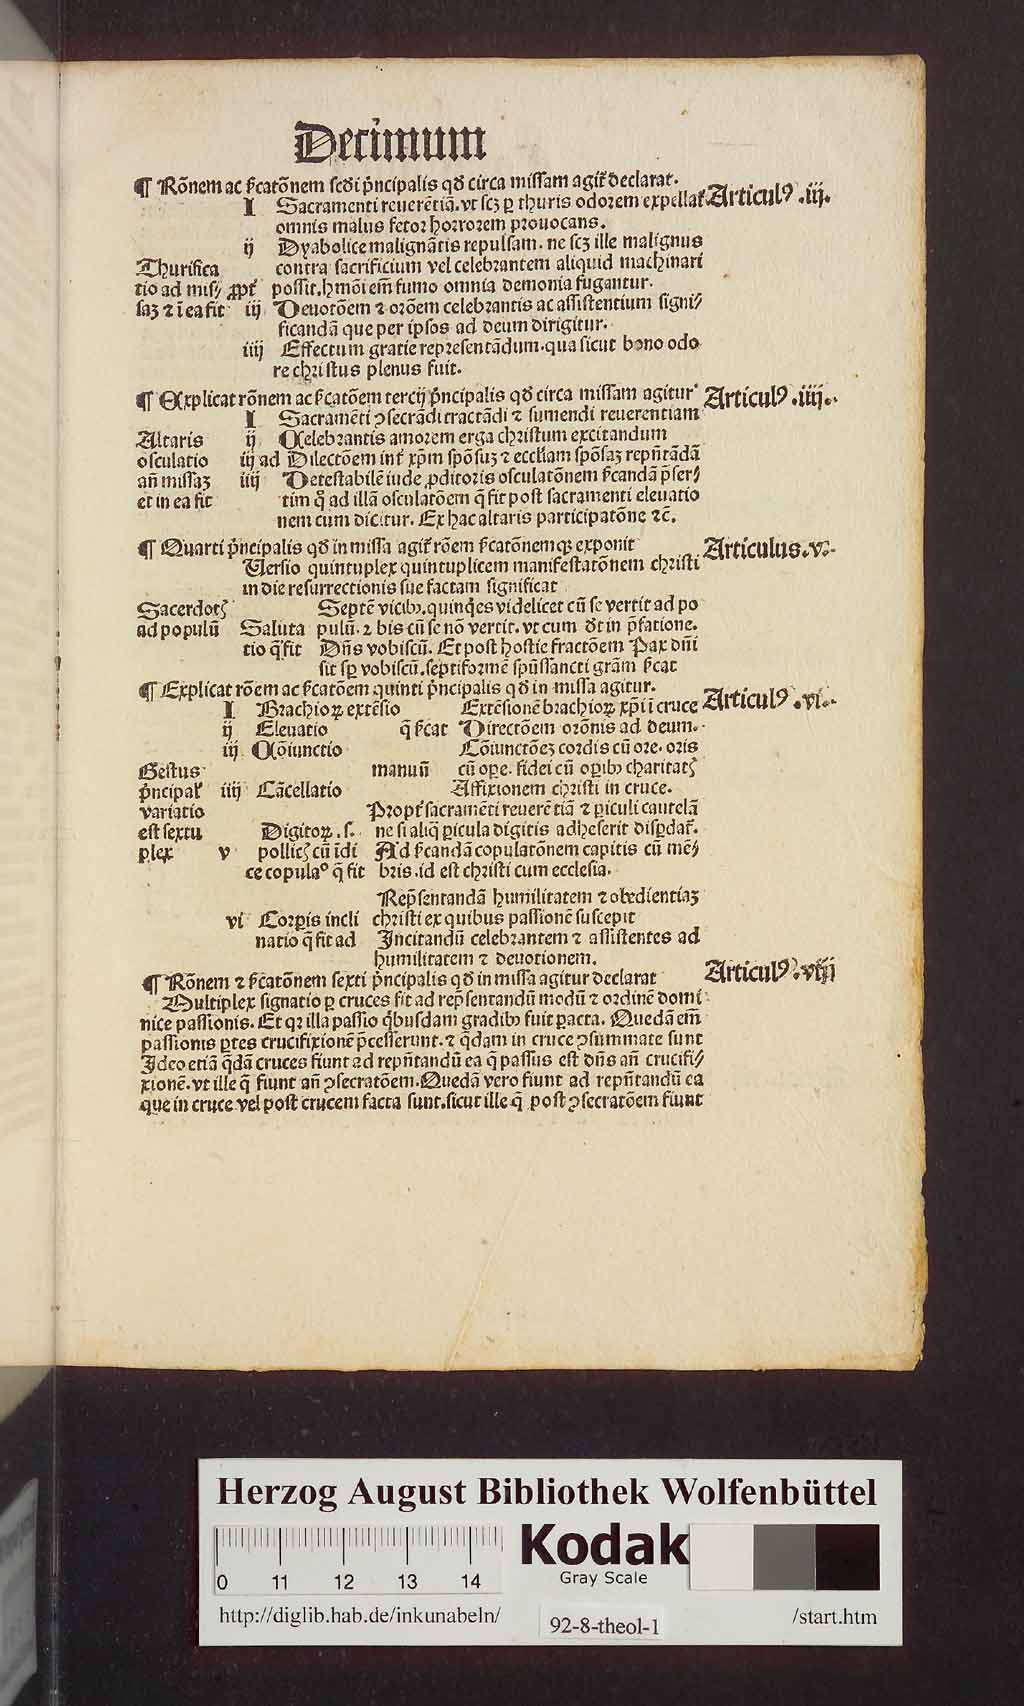 Decimum
¶ Rōnem ac ſ̄catōnem ſcdi p̄ncipalis qd̄ circa miſſam agit᷑ declarat. Articulꝰ .iij.
I Sacramenti reuerētiā. vt ſcꝫ ꝑ thuris odorem expellat᷑
omnis malus fetor horrorem prouocans.
ij Dyabolice malignātis repulſam. ne ſcꝫ ille malignus
Thurifica contra ſacrificium vel celebrantem aliquid machinari
tio ad miſ⸗ ꝓpt᷑ poſſit. hmōi em̄ fumo omnia demonia fugantur.
ſaꝫ ⁊ ī ea fit iij Deuotōem ⁊ orōem celebrantis ac aſſiſtentium ſigni⸗
ficandā que per ipſos ad deum dirigitur.
iiij Effectum gratie repreſentādum. qua ſicut bono odo
re chriſtus plenus fuit.
¶ Explicat rōnem ac ſ̄catōem tercij p̄ncipalis qd̄ circa miſſam agitur Articulꝰ .iiij.
I Sacramēti ꝯſecrādi tractādi ⁊ ſumendi reuerentiam
Altaris ij Celebrantis amorem erga chriſtum excitandum
oſculatio iij ad Dilectōem int᷑ xp̄m ſpōſuꝫ ⁊ eccl̄iam ſpōſaꝫ repn̄tādā
an̄ miſſaꝫ iiij Deteſtabilē iude ꝓditoris oſculatōnem ſ̄candā p̄ſer⸗
et in ea fit tim q̄ ad illā oſculatōem q̄ fit poſt ſacramenti eleuatio
nem cum dicitur. Ex hac altaris participatōne ⁊c̄.
¶ Quarti p̄ncipalis qd̄ in miſſa agit᷑ rōem ſ̄catōnemqꝫ exponit Articulus .v.
Verſio quintuplex quintuplicem manifeſtatōnem chriſti
in die reſurrectionis ſue factam ſignificat
Sacerdotꝭ Septē vicibꝰ. quinq̄es videlicet cū ſe vertit ad po
ad populū Saluta pulū. ⁊ bis cū ſe nō vertit. vt cum d̄t in p̄fatione.
tio q̄ fit Dn̄s vobiſcū. Et poſt hoſtie fractōem Pax dn̄i
ſit ſꝑ vobiſcū. ſeptiformē ſpūſſancti grām ſ̄cat
¶ Explicat rōem ac ſ̄catōem quinti p̄ncipalis qd̄ in miſſa agitur. Articulꝰ .vi.
I Brachioꝝ extēſio Extēſionē brachioꝝ xp̄i ī cruce
ij Eleuatio q̄ ſ̄cat Directōem orōnis ad deum.
iij Cōiunctio Cōiunctōeꝫ cordis cū ore. oris
Geſtus manuū cū oꝑe. fidei cū oꝑibꝰ charitatꝭ
p̄ncipal᷑ iiij Cācellatio Affixionem chriſti in cruce.
variatio Propt᷑ ſacramēti reuerētiā ⁊ ꝑiculi cautelā
eſt ſextu Digitoꝝ .ſ. ne ſi aliq̄ ꝑicula digitis adheſerit diſꝑdat᷑.
plex v pollicꝭ cū īdi Ad ſ̄candā copulatōnem capitis cū mē⸗
ce copulaᵒ q̄ fit bris. id eſt chriſti cum eccleſia.
Rep̄ſentandā humilitatem ⁊ obedientiaꝫ
vi Corꝑis incli chriſti ex quibus paſſionē ſuſcepit
natio q̄ fit ad Incitandū celebrantem ⁊ aſſiſtentes ad
humilitatem ⁊ deuotionem.
¶ Rōnem ⁊ ſ̄catōnem ſexti p̄ncipalis qd̄ in miſſa agitur declarat Articulꝰ .viij
Multiplex ſignatio ꝑ cruces fit ad rep̄ſentandū modū ⁊ ordinē domi
nice paſſionis. Et qꝛ illa paſſio q̇buſdam gradibꝰ fuit ꝑacta. Quedā em̄
paſſionis ꝑtes crucifixionē p̄ceſſerunt. ⁊ q̄dam in cruce ꝯſummate ſunt
Ideo etiā q̄dā cruces fiunt ad repn̄tandū ea q̄ paſſus eſt dn̄s an̄ crucifi⸗
xionē. vt ille q̄ fiunt an̄ ꝯſecratōem. Quedā vero fiunt ad repn̄tandū ea
que in cruce vel poſt crucem facta ſunt. ſicut ille q̄ poſt ꝯſecratōem fiunt
Herzog August Bibliothek Wolfenbüttel
Kodak
Gray Scale
0 11 12 13 14
http://diglib.hab.de/inkunabeln/
92-8-theol-1
/start.htm